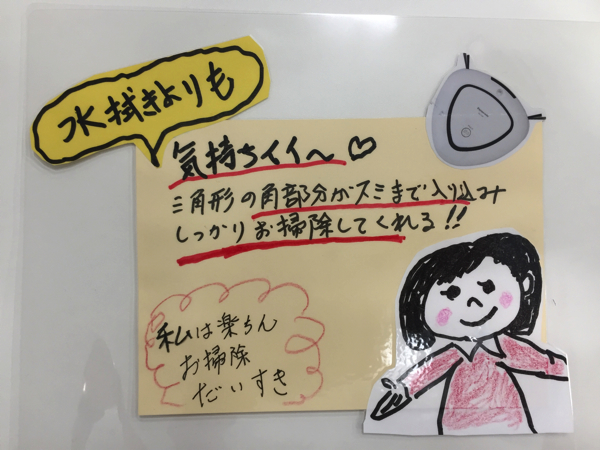 水拭きよりも
気持ちイイ〜♡
三角形の角部分がスミまで入り込み
しっかりお掃除してくれる!!
私は楽ちん
お掃除
だいすき